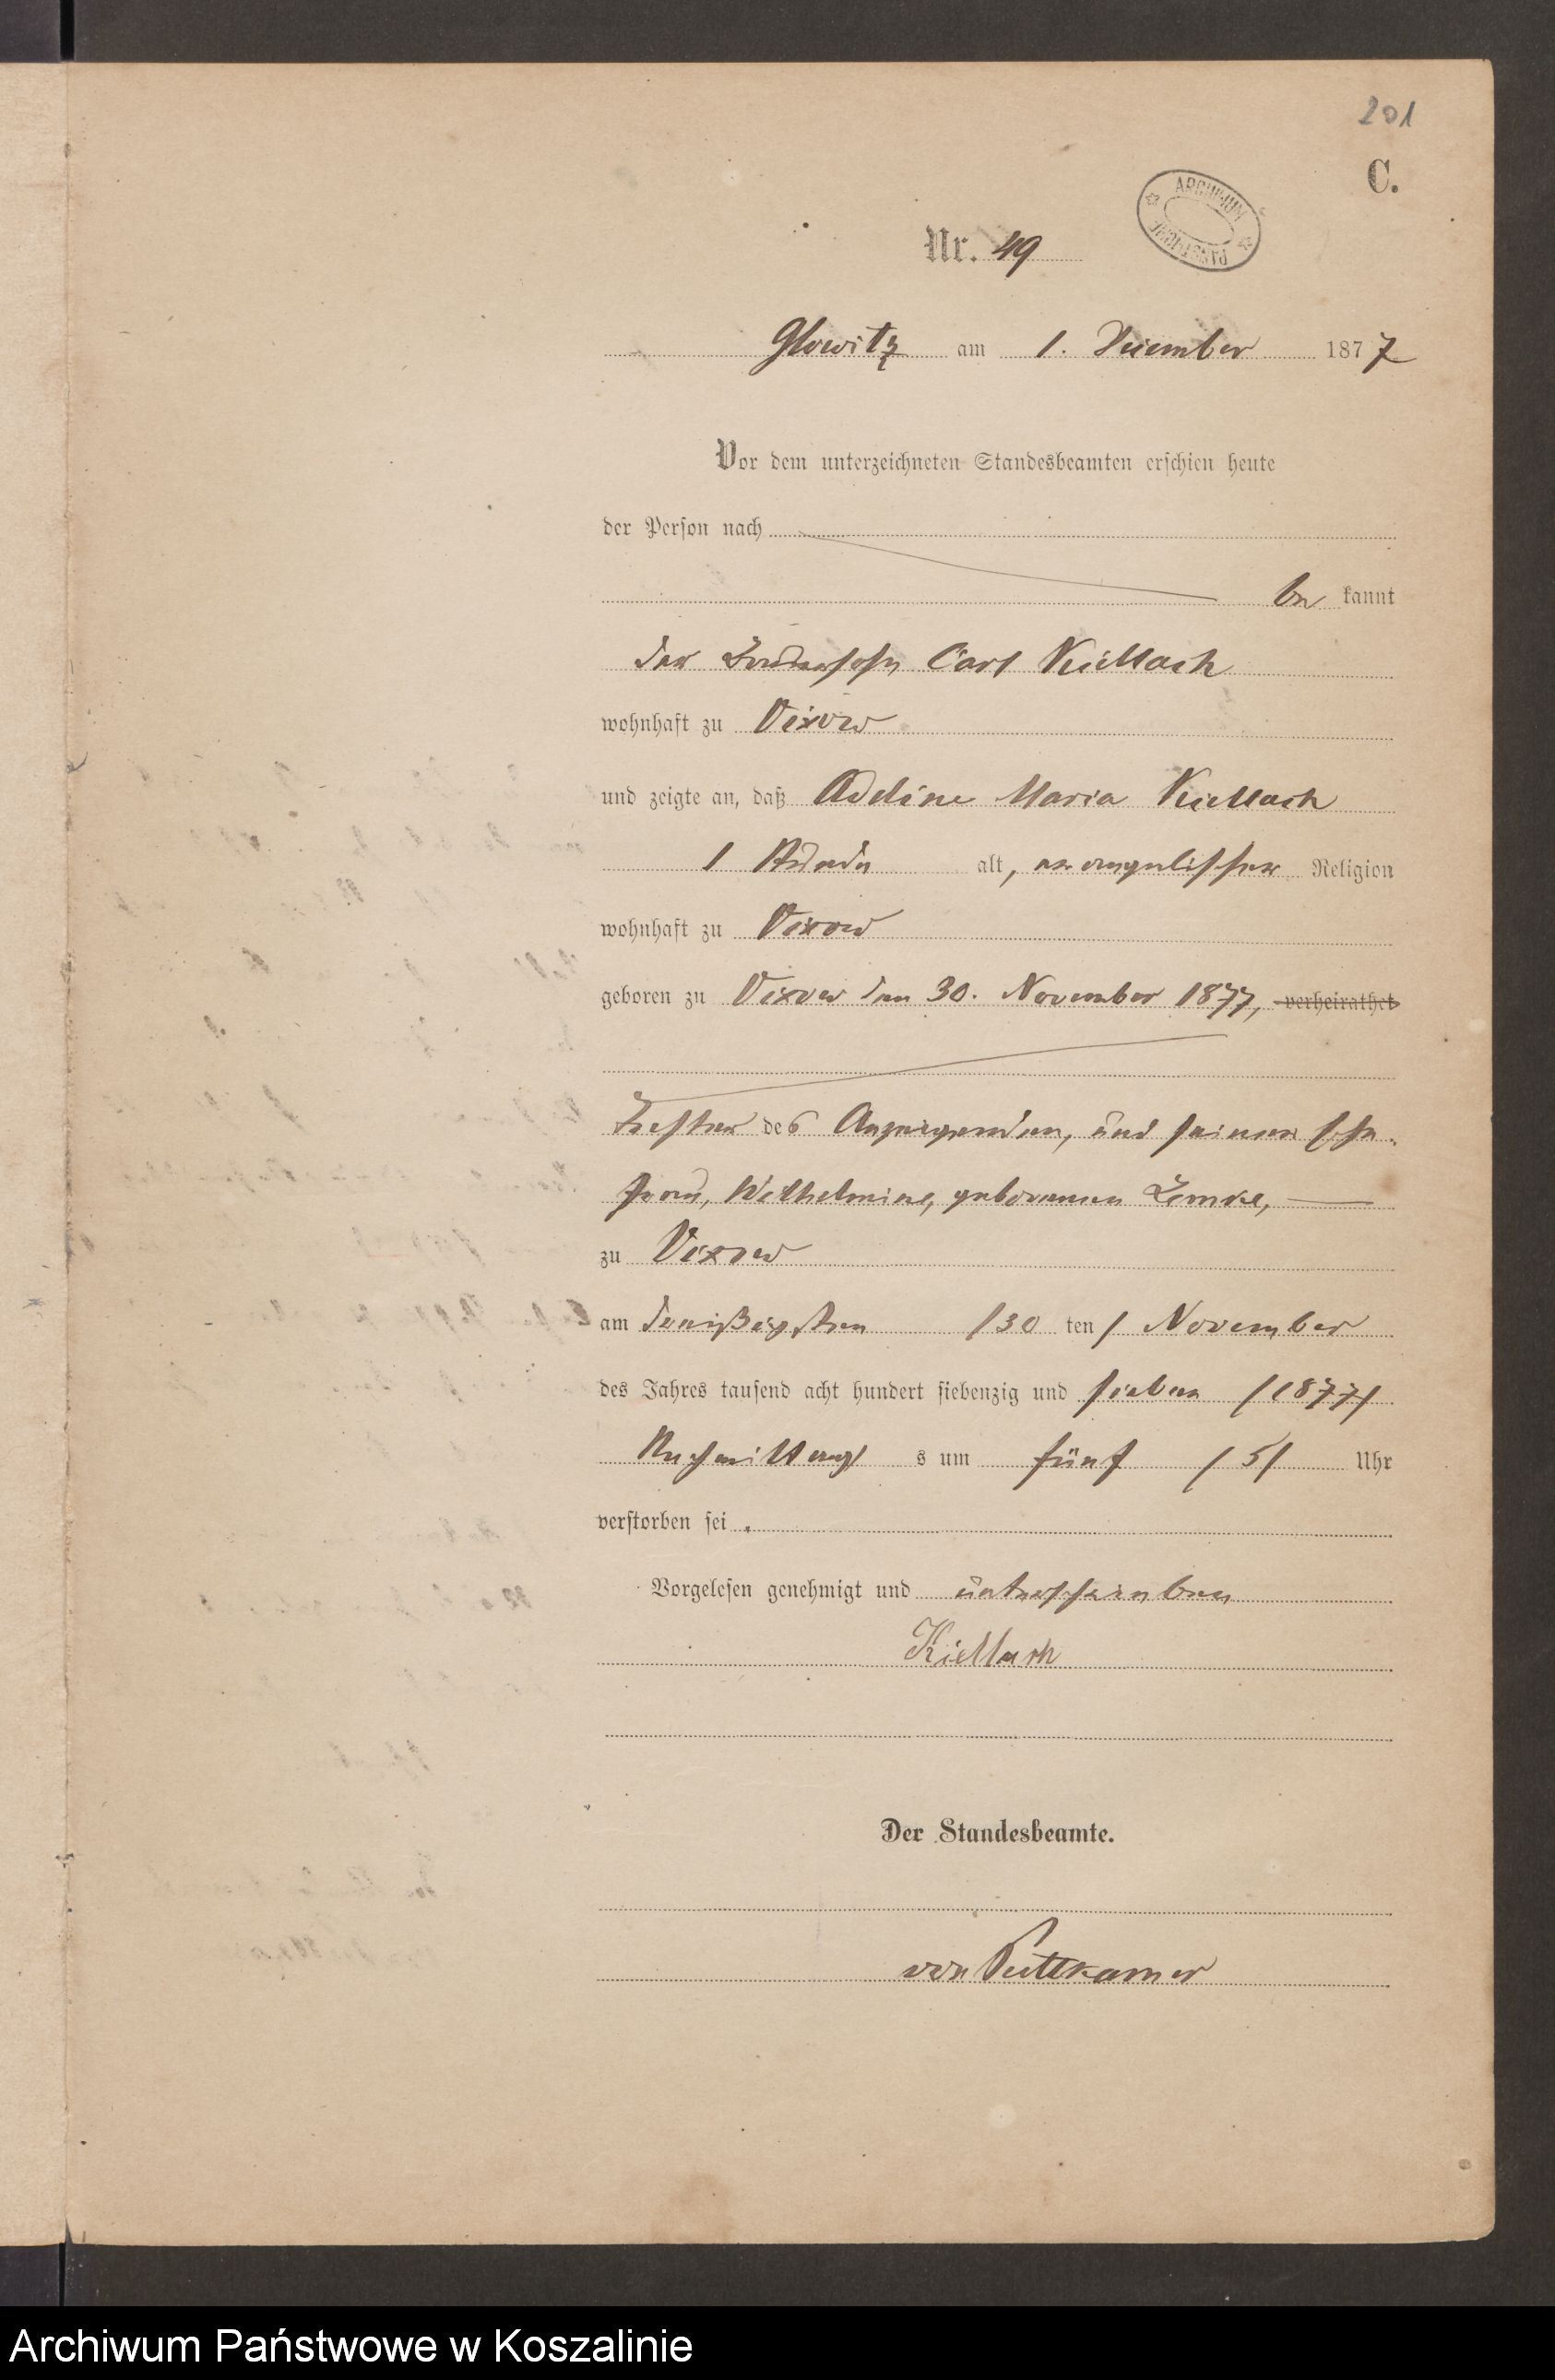 201
C.
ARCHIWUM PAŃSTWOWE
Nr. 49
Glowitz am 1. December 1877
Vor dem unterzeichneten Standesbeamten erschien heute
der Person nach
be kannt
der Carl Kiellach
wohnhaft zu Vixow
und zeigte an, daß Adeline Maria Kiellach
1 Stunde alt, evangelischer Religion
wohnhaft zu Vixow
geboren zu Vixow den 30. November 1877, verheirathet
Tochter des Anzeigenden, und seiner Ehe-
frau, Wilhelmine, geborenen Lemke,
zu Vixow
am dreißigsten /30 ten/ November
des Jahres tausend acht hundert siebenzig und sieben /1877/
Nachmittag s um fünf /5/ Uhr
verstorben sei.
Vorgelesen genehmigt und unterschrieben
Kiellach
Der Standesbeamte.
von Puttkamer
Archiwum Państwowe w Koszalinie